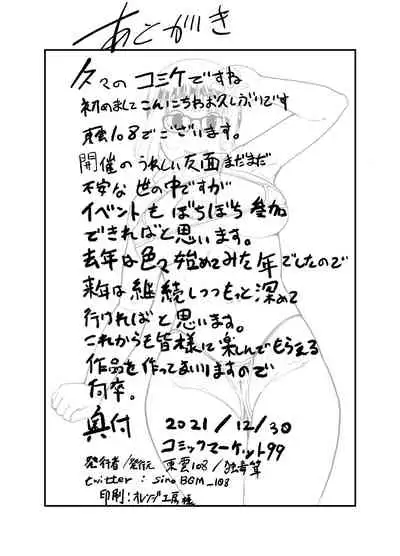 あとがき
久々の コミケですね
初めましてこんにちわお久しぶりです
東雲108でございます。
開催のうれしい反面まだまだ
不安な世の中ですが
イベントもぼちぼち参加
できればと思います。
去年は色々始めてみた年でしたので
来年は継続しつつもっと深めて
行ければと思います。
これからも皆様に楽しんでもらえる
作品を作ってまいりますので
何卒。
奥付 2021/12/30
コミックマーケット99
発行者/発行元 東雲108/独奇葬
twitter : sinoBGM_108
印刷:オレンジ工房様